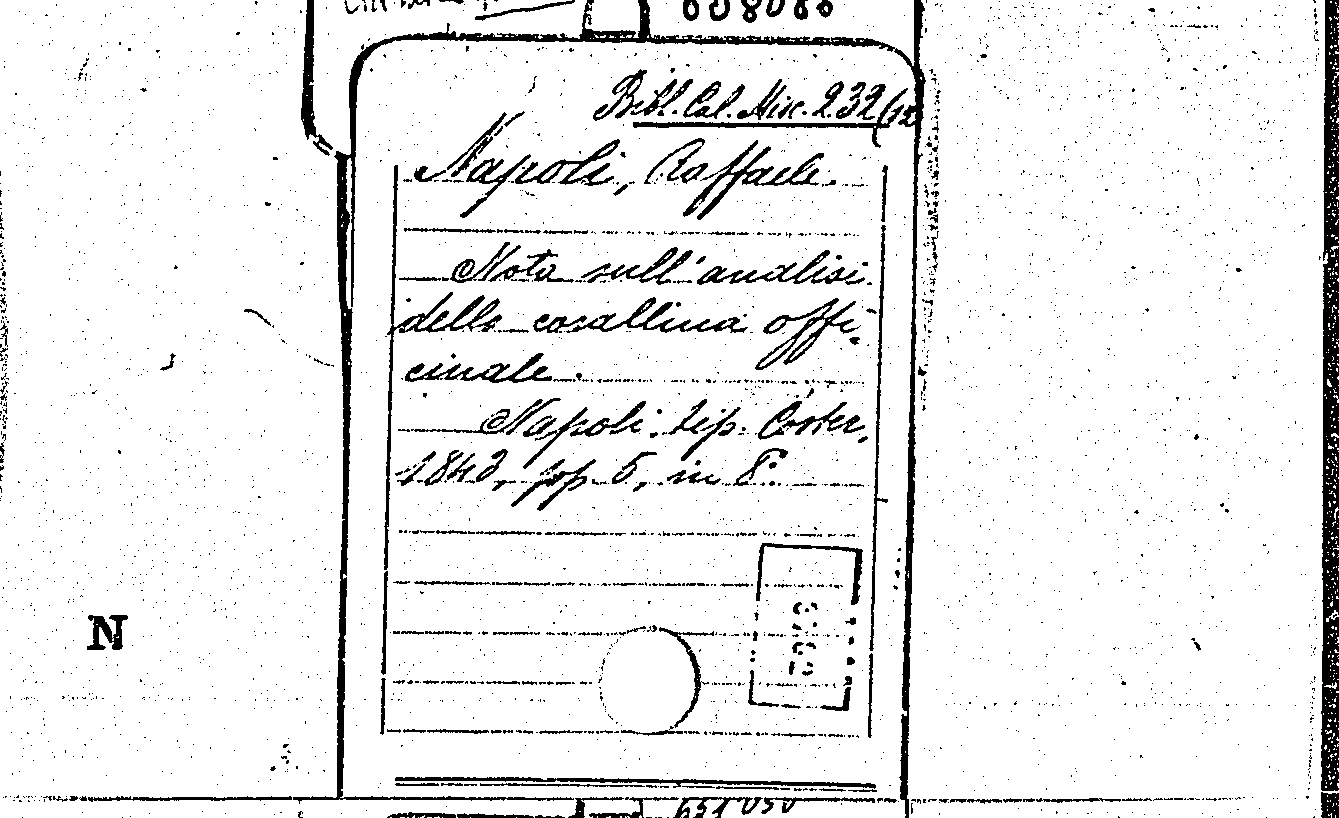 608086
Bibl. Cal. Misc. 232(12
Napoli, Raffaele.
Nota sull'analisi
della corallina offi-
cinale.
Napoli. tip. Coster,
1843, pp. 5, in 8°.
N